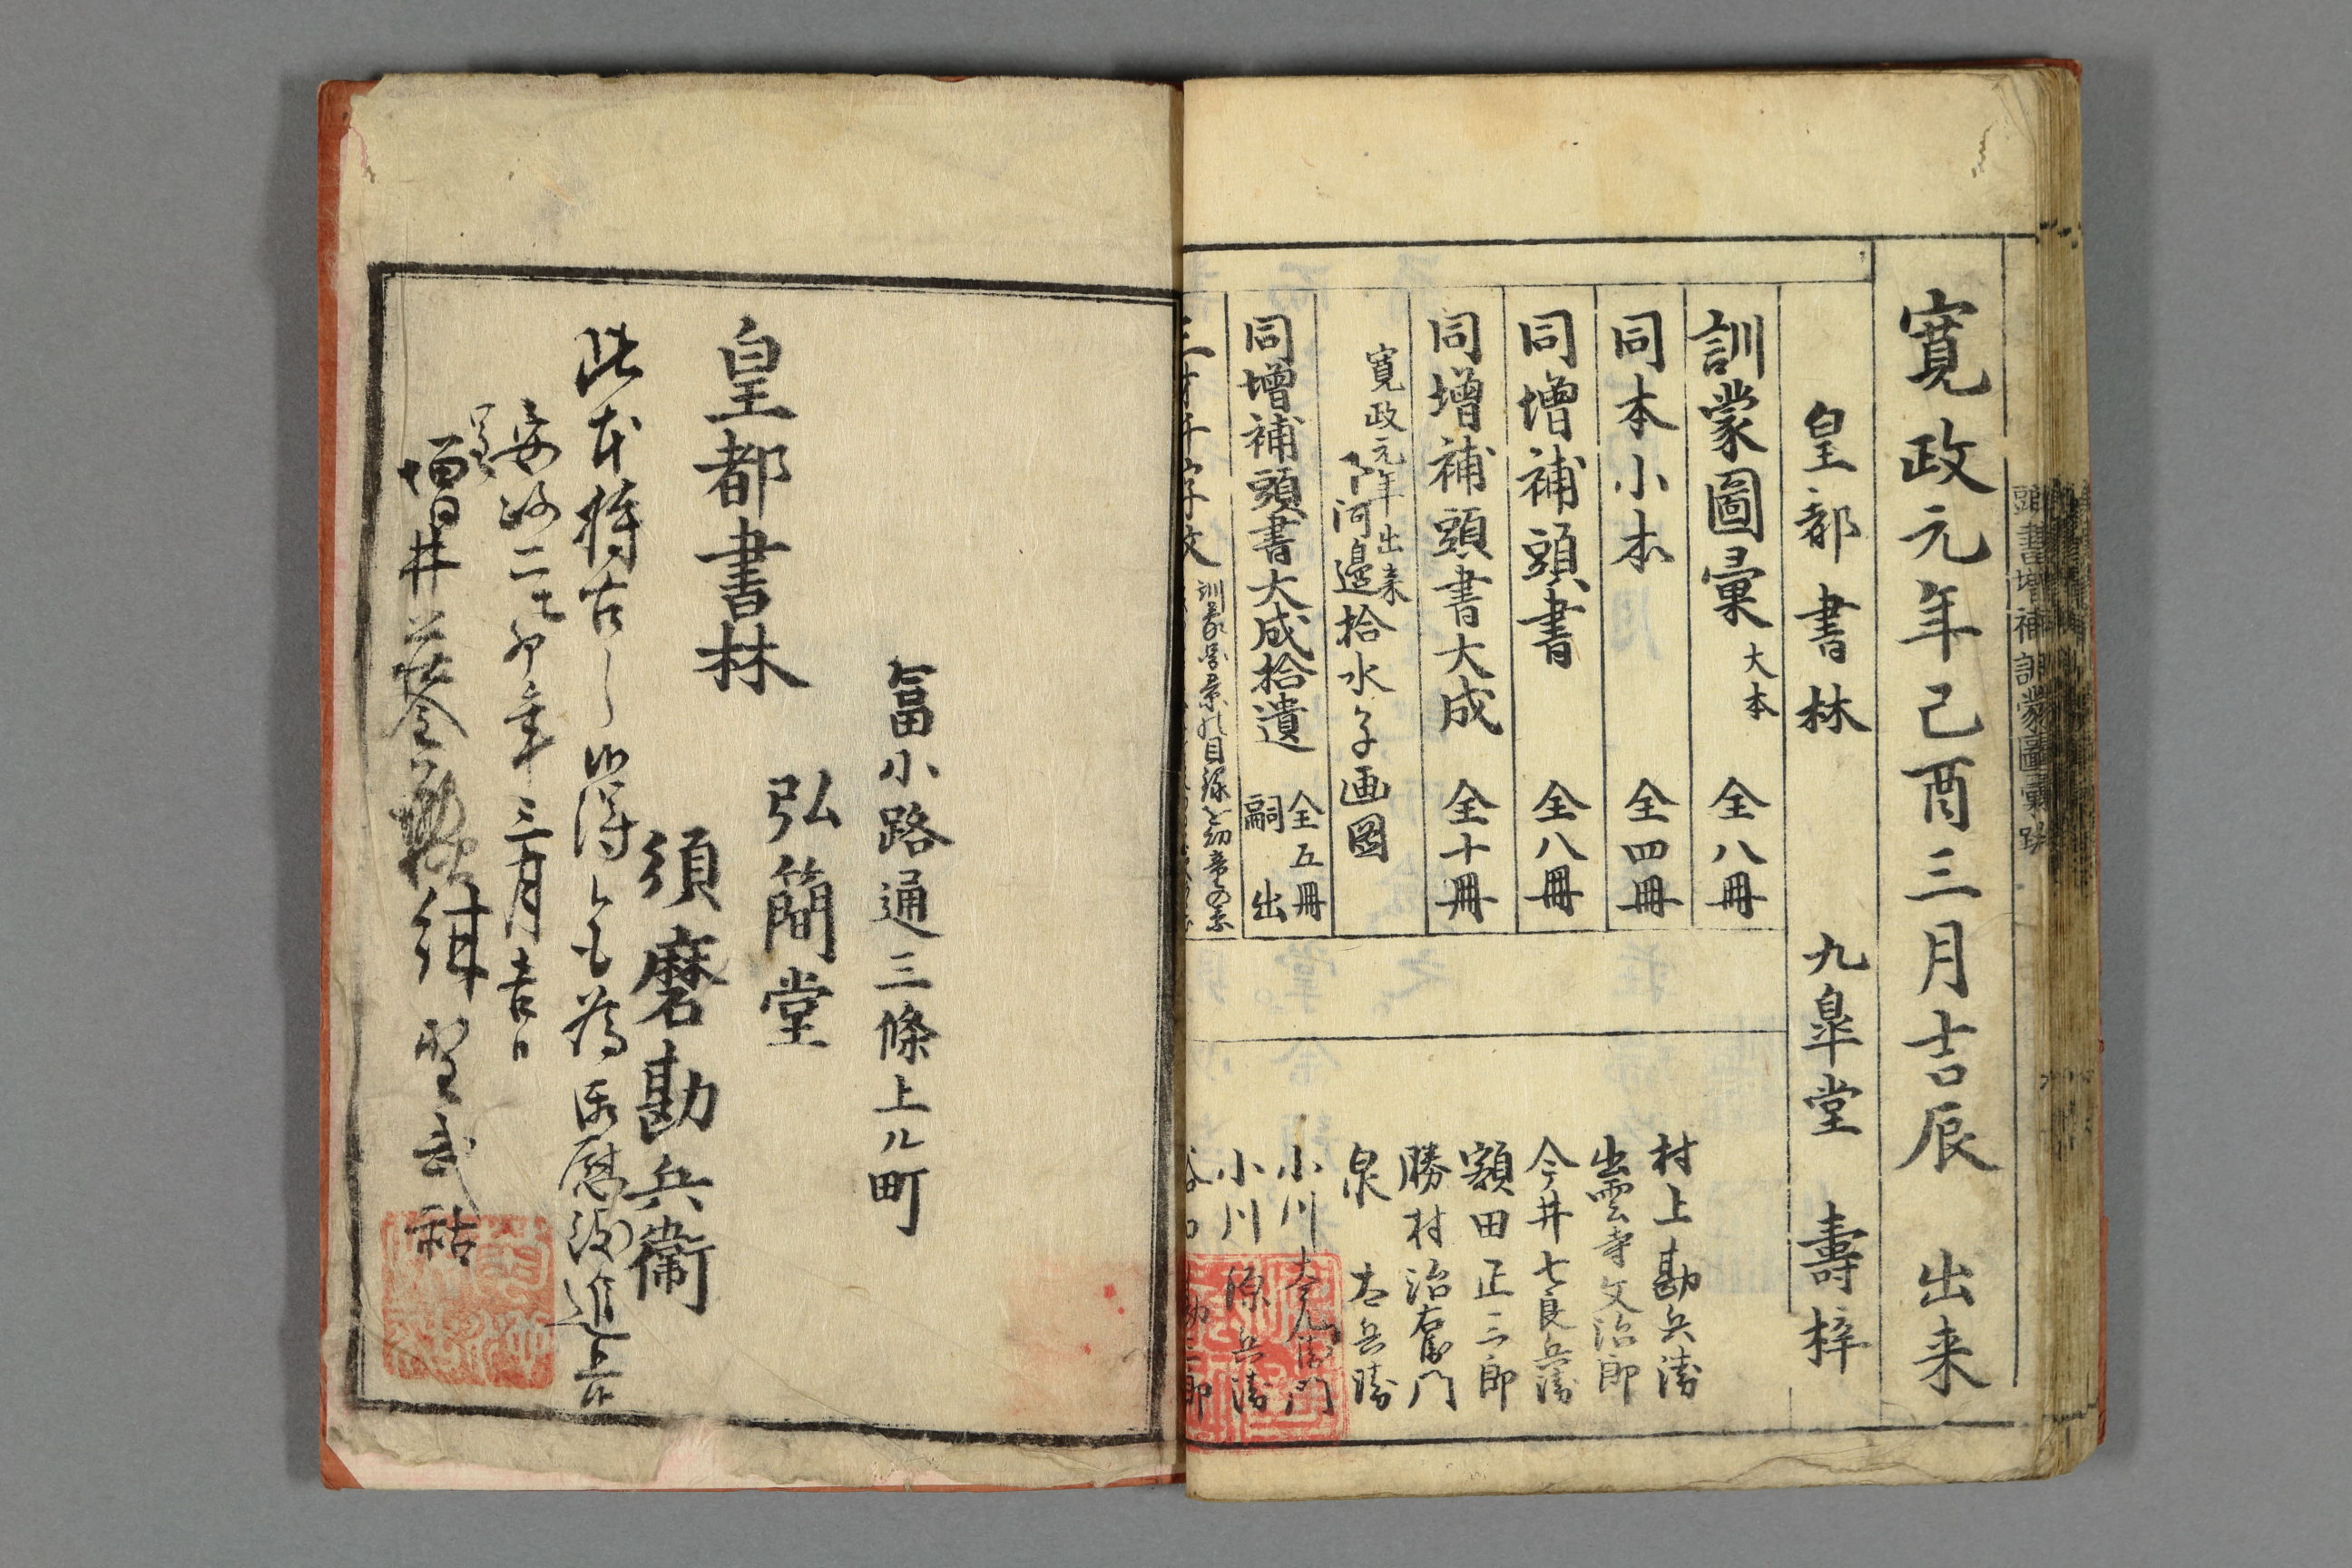 寛政元年己酉三月吉辰　出来
皇都書林　九皐堂　壽梓
訓蒙圖彙　大本　全八冊
同本小本　全四冊
同増補頭書　全八冊
同増補頭書大成　全十冊
寛政元年出来
下河邊拾水子画図
同増補頭書大成拾遺　全五冊　嗣出
千字文
村上勘兵衛
出雲寺文治郎
今井七良兵衛
額田正三郎
勝村治右衛門
泉太兵衛
小川太左衛門
小川源兵衛
富小路通三條上ル町
皇都書林　弘簡堂
須磨勘兵衛
安政二乙卯年三月吉日
増井
頭書増補訓蒙圖彙跋